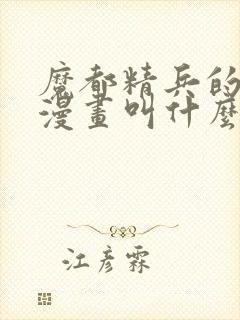 魔都精兵的
漫畫叫什麼
江彦霖